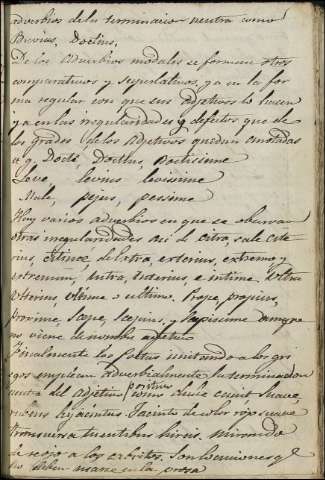 adverbios de la terminacion neutra como
Brevius, Doctius,
De los adverbios modales se forman otros
comparativos y superlativos, ya en la for
ma regular con que sus adjetivos lo hacen
y a en las irregularidades y defetos que de
los grados de los adjetivos quedan anotadas
v. g. Docte, Doctius, Doctissime
Leve, levius levissime
Male, pejus, pessime
Hay varios adverbios en que se observan
otras irregularidades asi de citra, sale cite
rius, de extra, exterius, extremo y
extremum, intra, interius, e intime. Ultra
ulterius, ultime o ultimo. Prope, propius,
Proxime, Saepe, Saepius, y Saepissime aunque
no viene de nombre adjetivo
Finalmente los Poetas imitando a los gri
egos emplean adverbialmente la terminacion
neutra del adjetivo positivo como dulce canit, suave
rubens hyacintus Jacinto de color rojo suave
transversa tuentibus hircis, mirando
de reojo a los cabritos. Son locuciones q.e
no deben usarse en la prosa